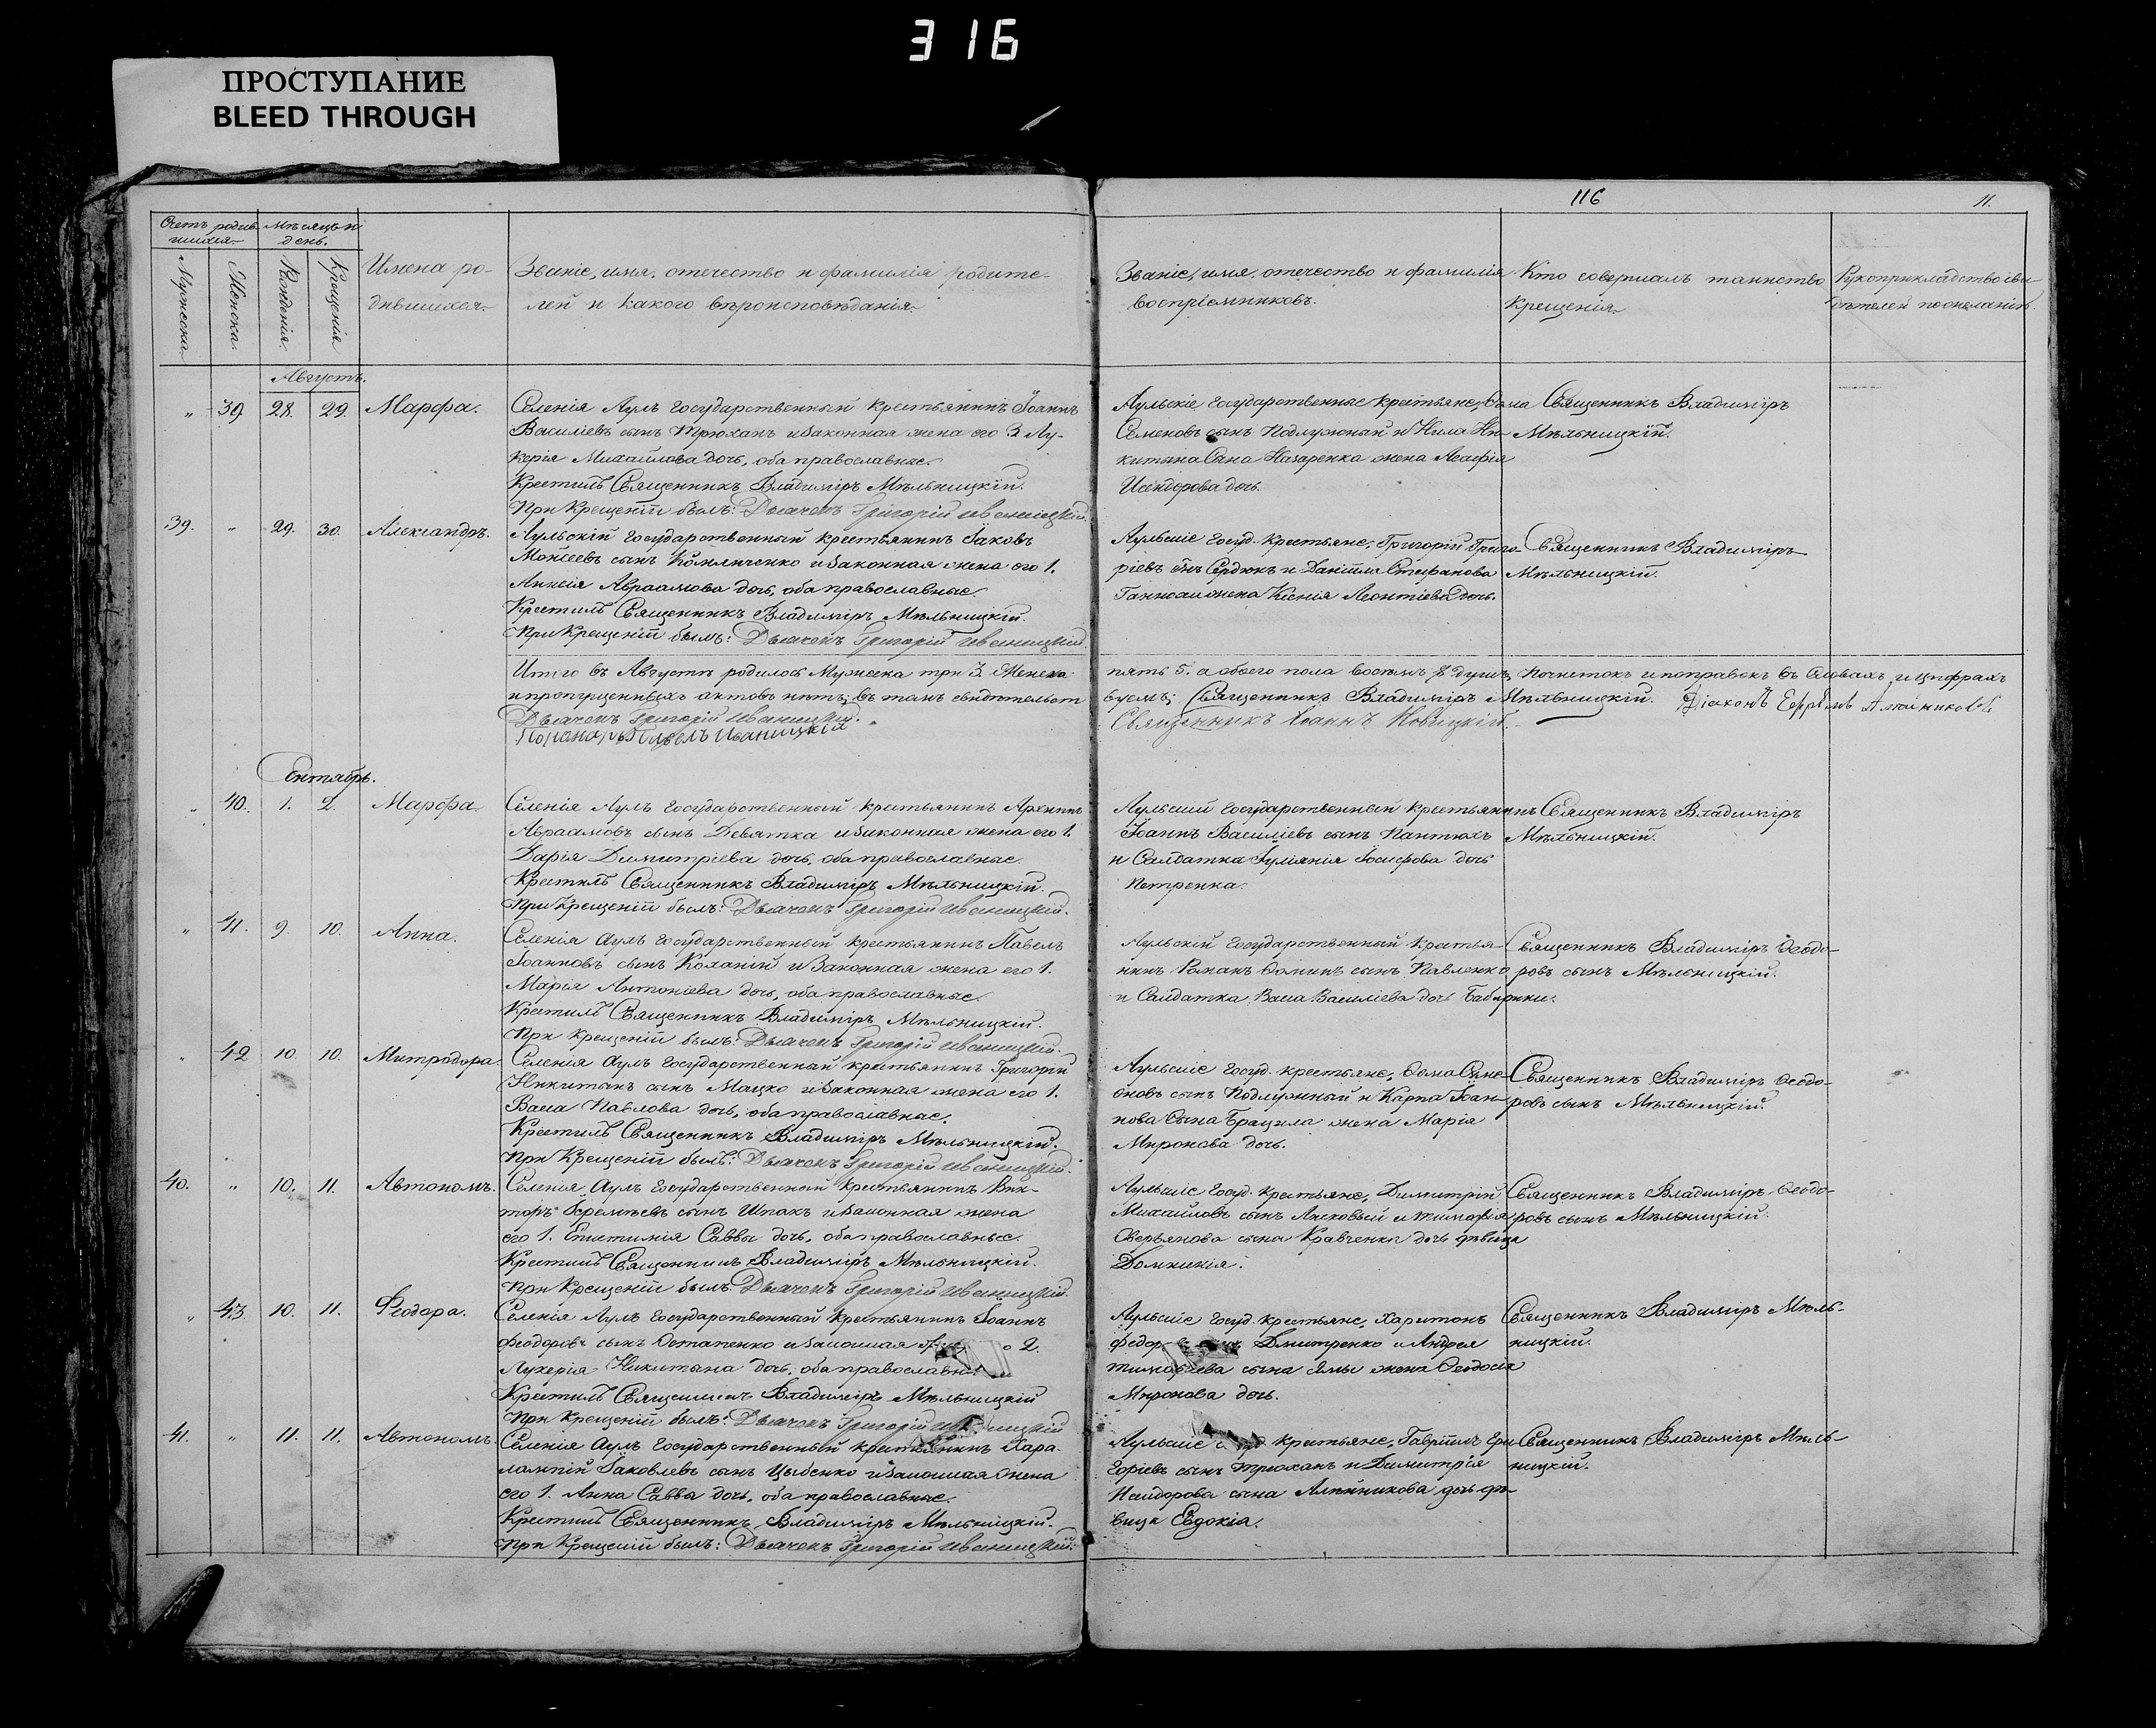 316
ПРОСТУПАНИЕ
BLEED THROUGH
116
11.
Счетъ родив-
шихся.
Мѣсяцъ и
день.
Мужеска.
Женска.
Рожденія.
Крещенія
Имена ро-
дившихся.
Званіе, имя, отечество и фамилія родите-
лей и какого вѣроисповѣданія.
Званіе, имя, отечество и фамилія
воспріемниковъ.
Кто совершалъ таинство
крещенія.
Рукоприкладство сви-
дѣтелей по желанію.
Августъ.
„ 39 28. 29. Марѳа.
Селенія Аулъ государственный крестьянинъ Іоаннъ
Василіевъ сынъ Трюханъ и законная жена его 3 Лу-
керія Михайлова дочь, оба православные.
Крестилъ Священникъ Владиміръ Мѣльницкій.
При крещеніи былъ: Дьячокъ Григорій Иваницкій.
Аульскіе государственные крестьяне, Ѳома
Семеновъ сынъ Подлужный и Нила Ни-
китина сына Назаренка жена
дочь.
Священникъ Владиміръ
Мѣльницкій.
39. „ 29. 30. Александръ.
Аульскій государственный крестьянинъ Іаковъ
Моисеевъ сынъ и законная жена его 1.
Авраамова дочь, оба православные.
Крестилъ Священникъ Владиміръ Мѣльницкій.
При крещеніи былъ: Дьячокъ Григорій Иваницкій.
Аульскіе госуд. крестьяне, Григорій Григо-
ріевъ снъ Сердюкъ и Даніила Стефанова
жена Ксенія Леонтіева дочь.
Священникъ Владиміръ
Мѣльницкій.
Итого въ Августѣ родилось Мужеска три 3. Женска
пять 5. а обоего пола восемь 8 душъ, почистокъ и поправокъ въ словахъ и цифрахъ
и пропущенныхъ актовъ нѣтъ; въ томъ свидѣтельст
вуемъ; Священникъ Владиміръ Мѣльницкій. Діаконъ Ефремъ
Дьячокъ Григорій Иваницкій.
Священникъ Іоаннъ Новицкій.
Пономарь Павелъ Иваницкій
Сентябрь.
„ 40. 1. 2. Марѳа.
Селенія Аулъ государственный крестьянинъ Архипъ
Авраамовъ сынъ Девятка и законная жена его 1.
Дарія Димитріева дочь, оба православные.
Крестилъ Священникъ Владиміръ Мѣльницкій.
При крещеніи былъ: Дьячокъ Григорій Иваницкій.
Аульскій государственный крестьянинъ
Іоаннъ Василіевъ сынъ Пантюхъ
и Салдатка Іуліанія Іосифова дочь
Петренка.
Священникъ Владиміръ
Мѣльницкій.
„ 41. 9. 10. Анна.
Селенія Аулъ государственный крестьянинъ Павелъ
Іоанновъ сынъ Коханій и законная жена его 1.
Марія Антоніева дочь, оба православные.
Крестилъ Священникъ Владиміръ Мѣльницкій.
При крещеніи былъ: Дьячокъ Григорій Иваницкій.
Аульскій государственный крестья-
нинъ Романъ Ѳоминъ сынъ Павленко
и Салдатка Васа Василіева дочь
Священникъ Владиміръ Ѳеодо-
ровъ сынъ Мѣльницкій.
„ 42 10. 10. Митродора.
Селенія Аулъ государственный крестьянинъ Григорій
Никитинъ сынъ Мацко и законная жена его 1.
Васа Павлова дочь, оба православные.
Крестилъ Священникъ Владиміръ Мѣльницкій.
При крещеніи былъ: Дьячокъ Григорій Иваницкій.
Аульскіе госуд. крестьяне, Ѳома Симе-
оновъ сынъ Подлужный и Карпа Іоан-
нова сына жена Марія
Миронова дочь.
Священникъ Владиміръ Ѳеодо-
ровъ сынъ Мѣльницкій.
40. „ 10. 11. Автономъ.
Селенія Аулъ государственный крестьянинъ Вик-
торъ сынъ Шпакъ и законная жена
его 1. Епистимія Саввы дочь, оба православные.
Крестилъ Священникъ Владиміръ Мѣльницкій.
При крещеніи былъ: Дьячокъ Григорій Иваницкій.
Аульскіе госуд. крестьяне, Димитрій
Михайловъ сынъ и Тимофѣя
сына Кравченка дочь дѣвица
Домникія.
Священникъ Владиміръ Ѳеодо-
ровъ сынъ Мѣльницкій.
„ 43. 10. 11. Ѳеодора.
Селенія Аулъ государственный крестьянинъ Іоаннъ
Феодоровъ сынъ Остапенко и законная 2.
Лукерія Никитина дочь, оба православн
Крестилъ Священникъ Владиміръ Мѣльницкій
При крещеніи былъ: Дьячокъ Григорій
Аульскіе госуд. крестьяне, Харитонъ
Федор Дмитренко и Андрея
сына Ямы жена Ѳеодосія
Миронова дочь.
Священникъ Владиміръ Мѣль-
ницкій.
41. „ 11. 11. Автономъ.
Селенія Аулъ государственный крестьянинъ Хара-
лампій Іаковлевъ сынъ Цыбенко и законная жена
его 1. Анна Саввы дочь, оба православные.
Крестилъ Священникъ Владиміръ Мѣльницкій.
При крещеніи былъ: Дьячокъ Григорій Иваницкій.
Аульскіе крестьяне, Гавріилъ Гри-
горіевъ сынъ Трюханъ и Димитрія
сына дочь дѣ-
вица Евдокія.
Священникъ Владиміръ Мѣль-
ницкій.